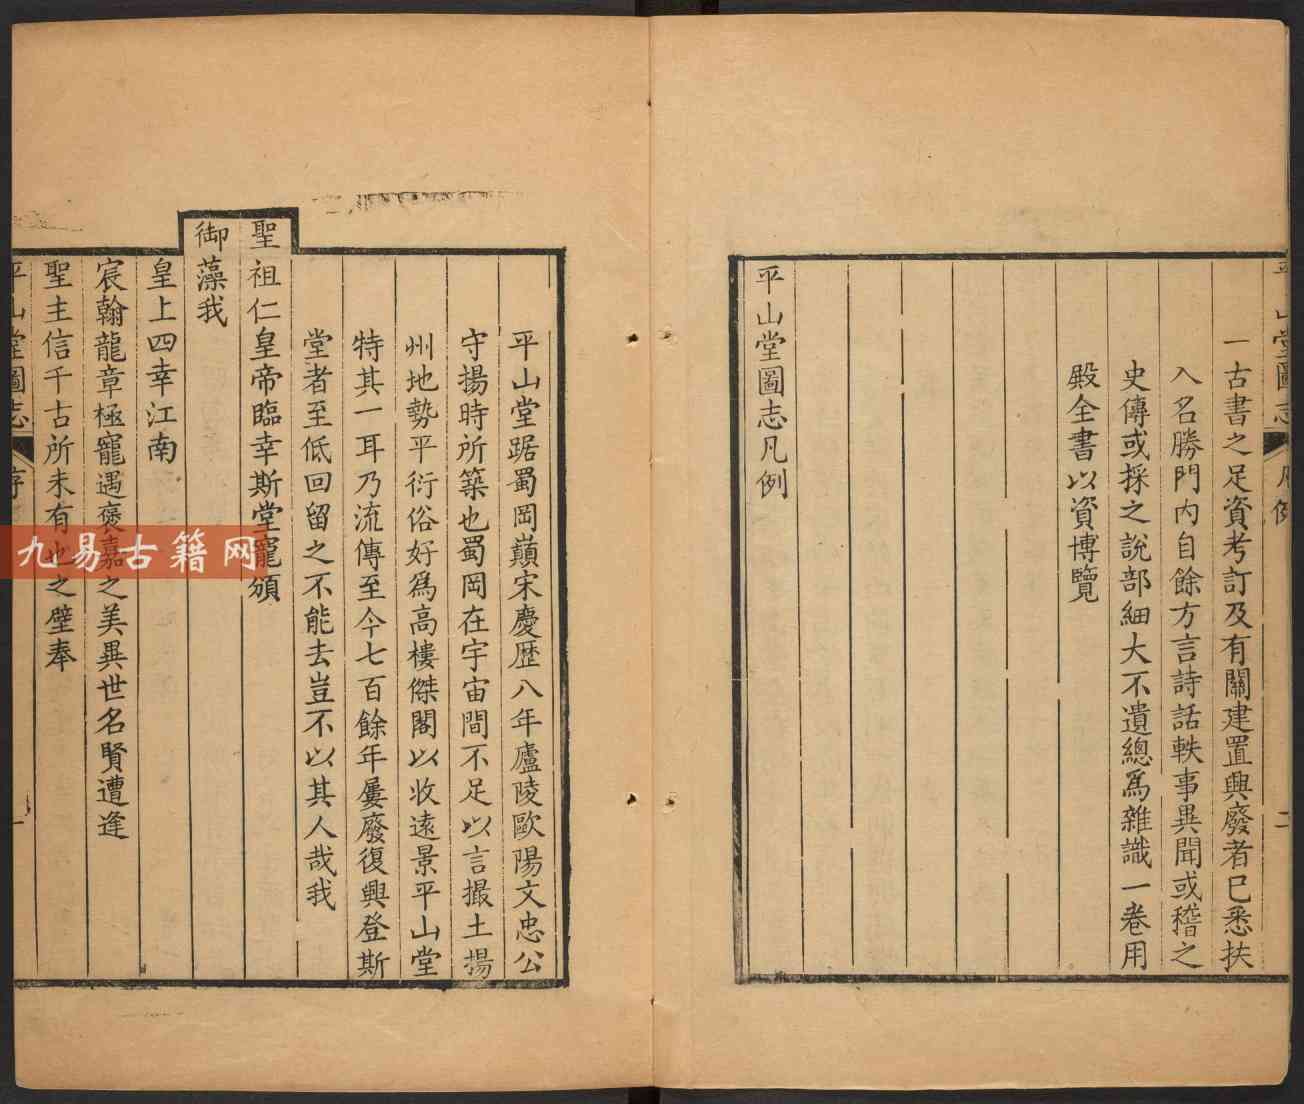 一古書之足資考訂及有關建置興廢者已悉扶
入名勝門內自餘方言詩話軼事異聞或稽之
史傳或採之說部細大不遺總爲雜識一卷用
殿全書以資博覽
平山堂圖志凡例
平山堂踞蜀岡巔宋慶歷八年廬陵歐陽文忠公
守揚時所築也蜀岡在宇宙間不足以言撮土揚
州地勢平衍俗好爲高樓傑閣以收遠景平山堂
特其一耳乃流傳至今七百餘年屢廢復興登斯
堂者至低回留之不能去豈不以其人哉我
聖祖仁皇帝臨幸斯堂寵頒
御藻我
皇上四幸江南
宸翰龍章極寵遇褒嘉之美異世名賢遭逢
聖主信千古所未有也之壁奉
平山堂圖志 序
九易古籍网